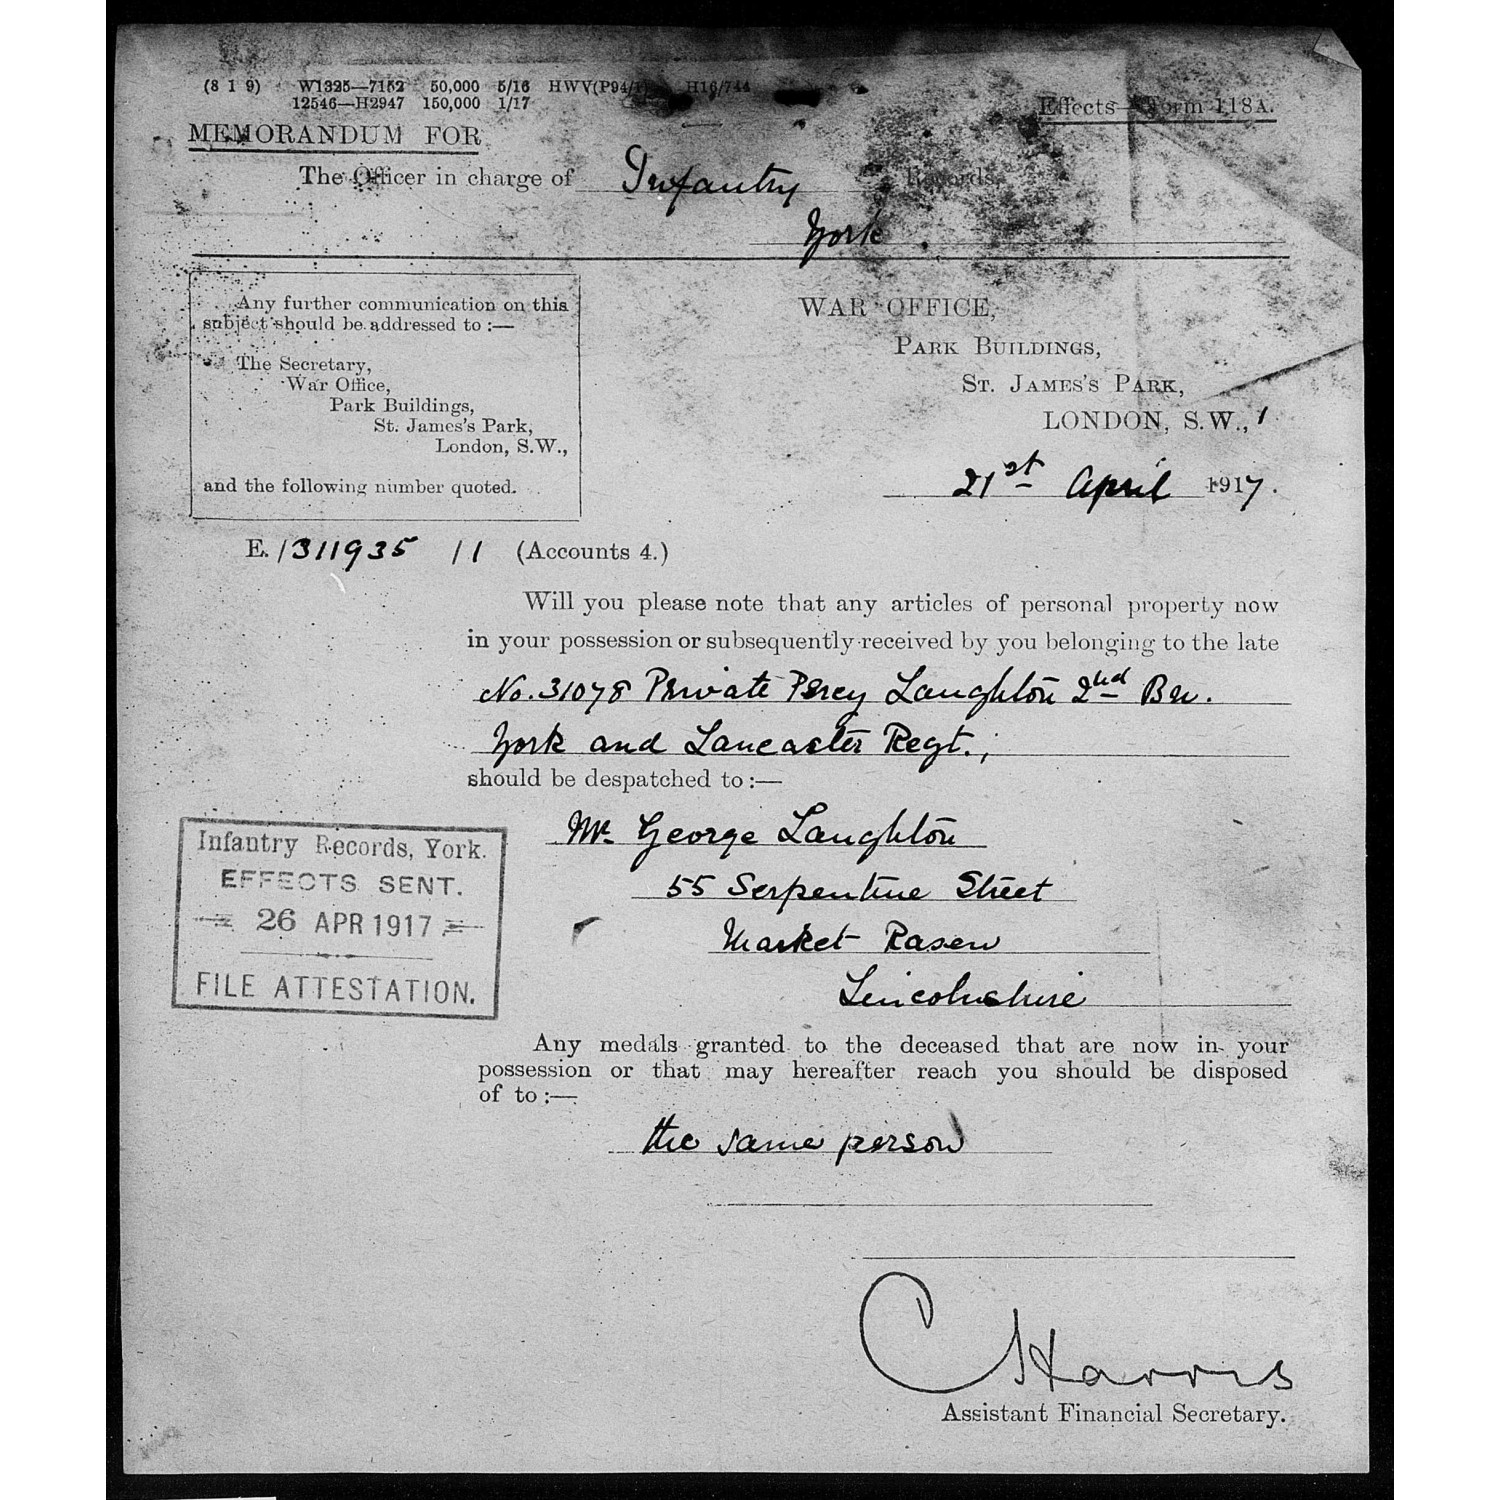 (8 1 9) W1325—7152 50,000 5/16 HWV(P94/1) H16/744
12546—H2947 150,000 1/17
Effects—Form 118A.
MEMORANDUM FOR
The Officer in charge of Infantry Records,
York
Any further communication on this
subject should be addressed to :—
The Secretary,
War Office,
Park Buildings,
St. James's Park,
London, S.W.,
and the following number quoted.
WAR OFFICE,
PARK BUILDINGS,
ST. JAMES'S PARK,
LONDON, S.W., 1
21st April 1917.
E. /311935 /1 (Accounts 4.)
Will you please note that any articles of personal property now
in your possession or subsequently received by you belonging to the late
No. 31078 Private Percy Laughton 2nd Bn.
York and Lancaster Regt.;
should be despatched to :—
Mr. George Laughton
55 Serpentine Street
Market Rasen
Lincolnshire
Infantry Records, York.
EFFECTS SENT.
26 APR 1917
FILE ATTESTATION.
Any medals granted to the deceased that are now in your
possession or that may hereafter reach you should be disposed
of to :—
the same person
C Harris
Assistant Financial Secretary.